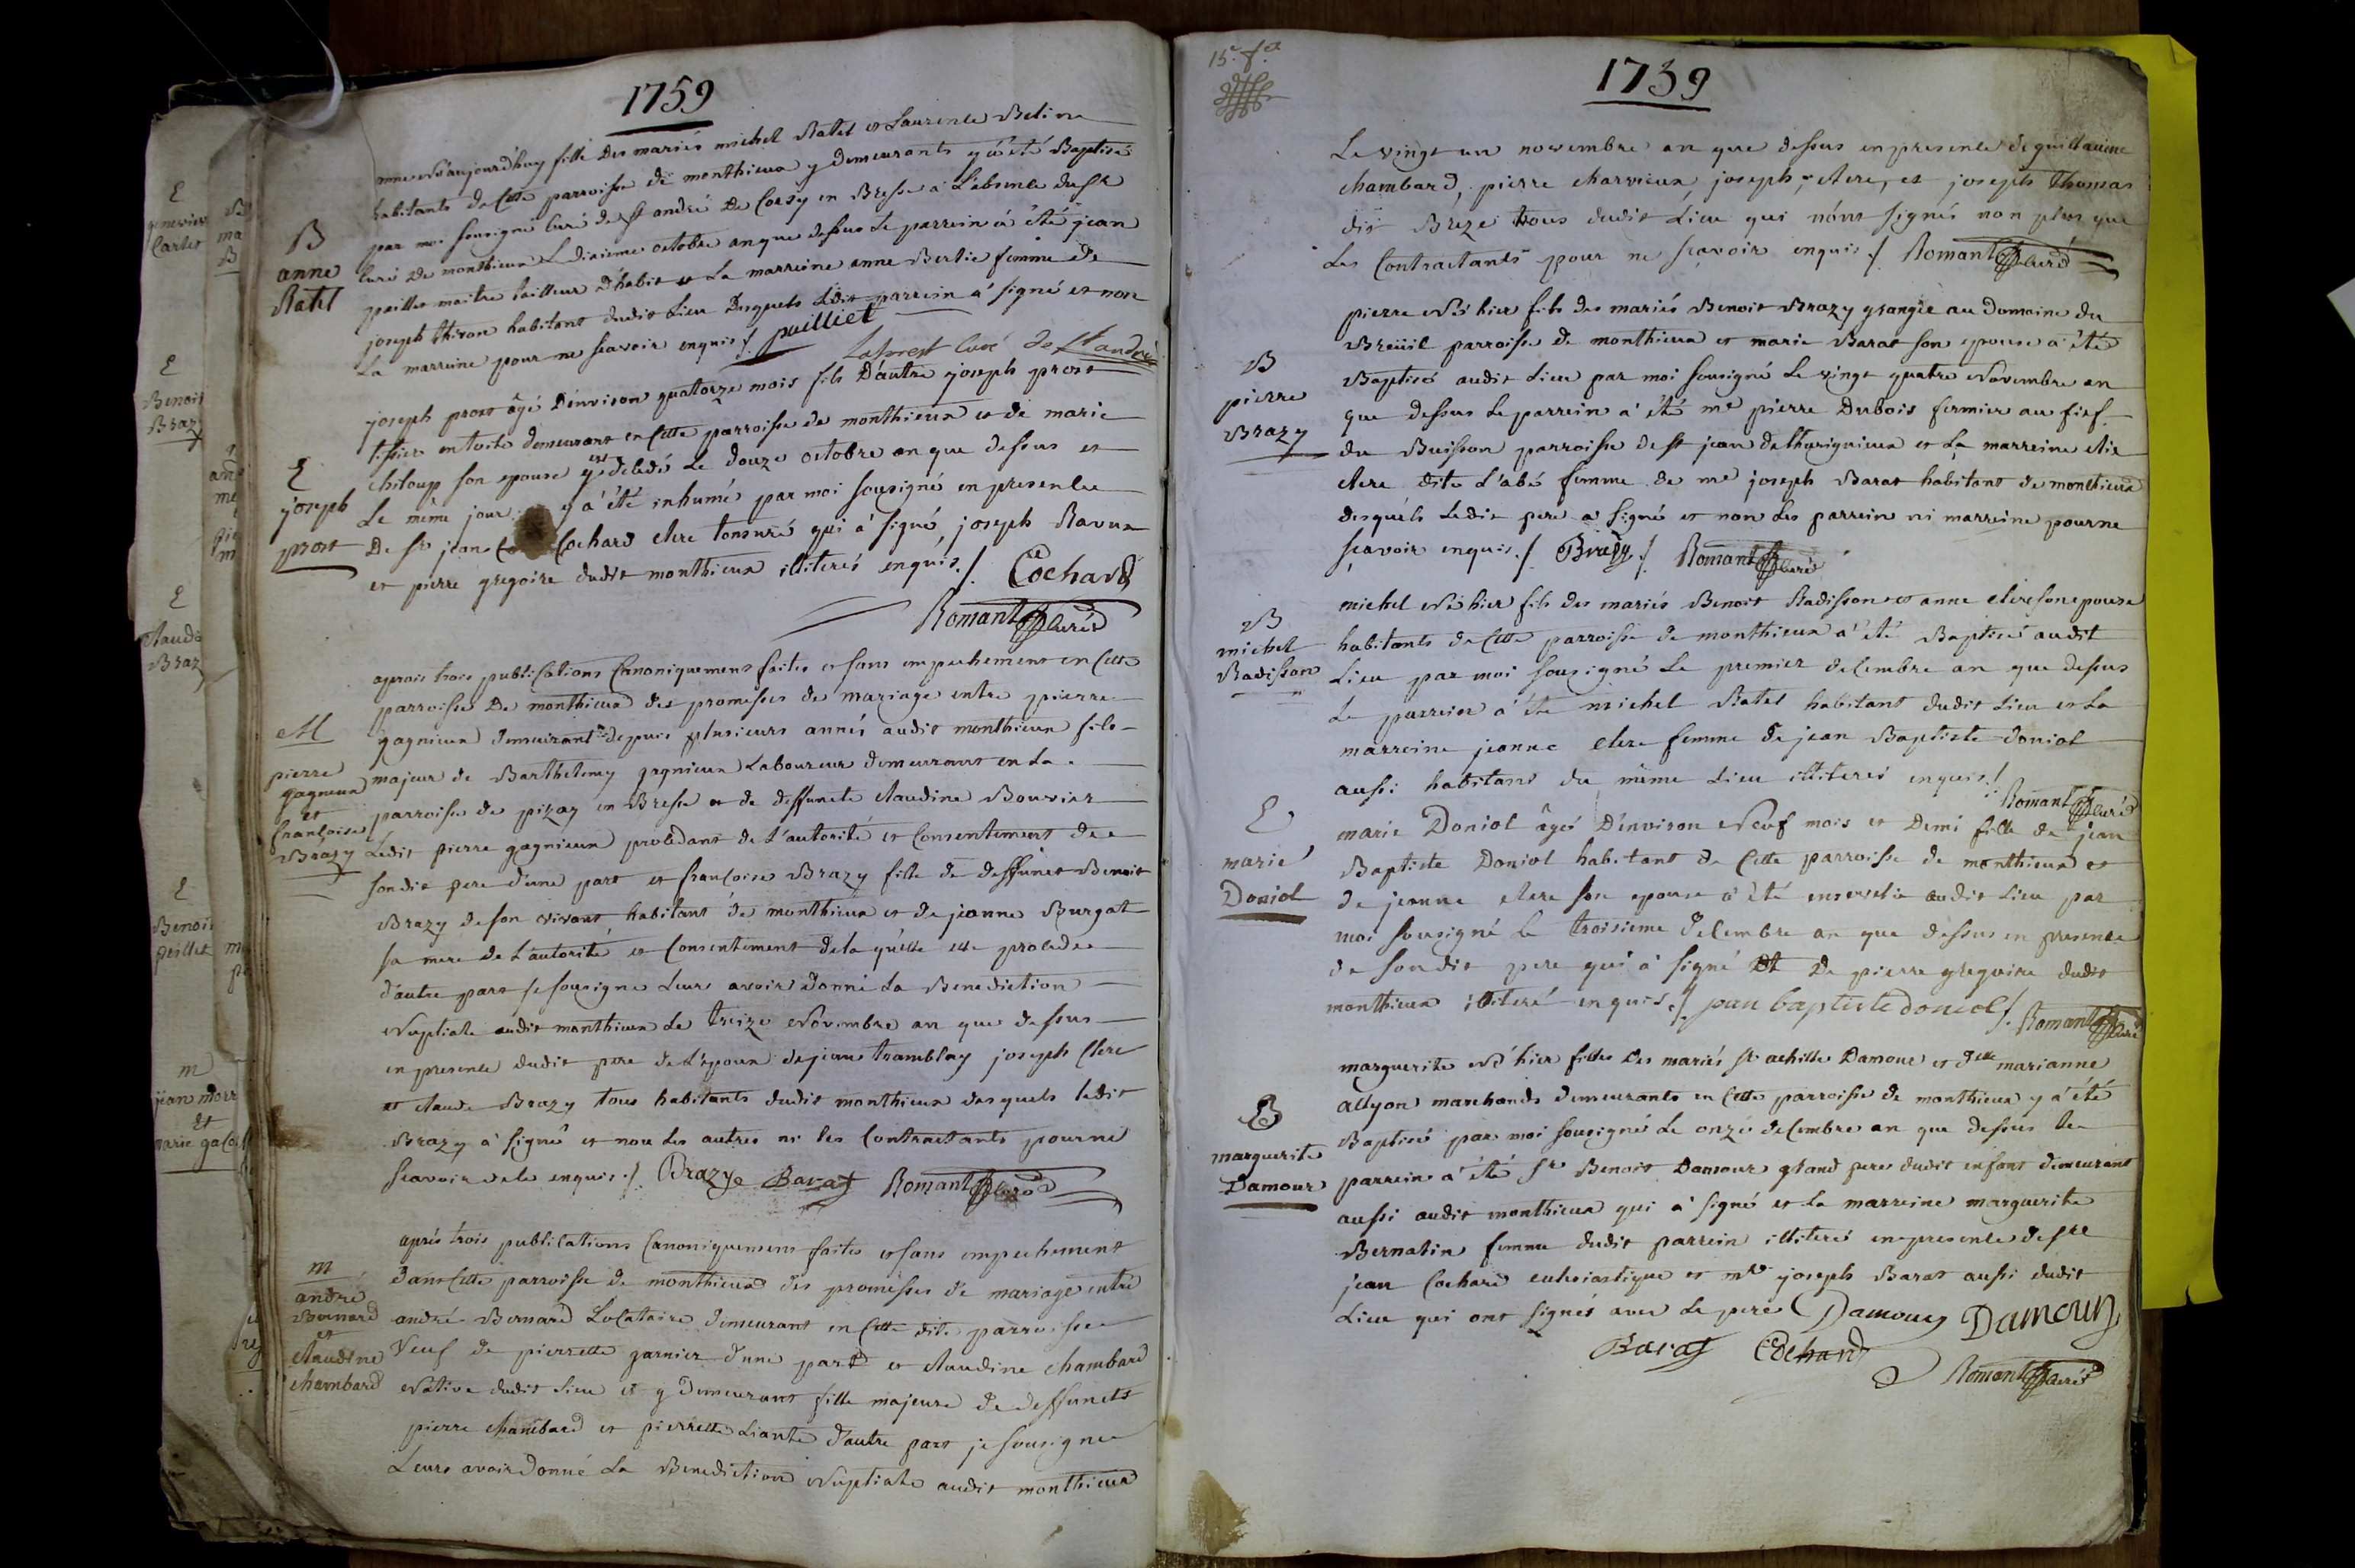 1759
B
anne
Ratel
anne Née aujourd'huy fille des mariés michel Ratel et Laurence Beline
habitants de cette parroisse de monthieux y demeurants y a été Baptisée
par moi sousigné curé de st andré de Corsy en Bresse à L'absence du sr
curé de monthieux Le dixieme octobre an que dessus Le parrein à été jean
maitre tailleur d'habit et La marreine anne femme de
joseph thiron habitant dudit Lieu Desquels Ledit parrein à signé et non
La marreine pour ne scavoir enquis ./. pailliet
curé de st andré
E
joseph
prost
joseph prost âgé D'environ quatorze mois fils D'autre joseph prost
tissier en toile demeurant en cette parroisse de monthieux et de marie
chiloup son epouse y est decedé Le douze octobre an que dessus et
Le même jour y à été inhumé par moi sousigné en presence
De sr jean Cochard clerc tonsuré qui à signé, joseph Ravux
et pierre gregoire dudit monthieux illiterés enquis ./. Cochard
Romant Curé
M
pierre
gagnieux
et
françoise
Brazy
aprais trois publications Canoniquement faites et sans empechement en cette
parroisse De monthieux des promesses de mariage entre pierre
gagnieux demeurant depuis plusieurs annés audit monthieux fils
majeur de Barthelemy gagnieux Laboureur demeurant en La
parroisse de pizay en Bresse et de deffuncte Claudine Bouvier
Ledit pierre gagnieux procedant de L'autorité et Consentement de
sondit pere d'une part et françoise Brazy fille de deffunct Benoit
Brazy de son vivant habitant de monthieux et de jeanne Burgat
sa mere de L'autorité et Consentement de la qu'elle elle procede
d'autre part je sousigné Leurs avoir Donné La Benediction
Nuptiale audit monthieux Le treize Novembre an que dessus
en presence dudit pere de L'epoux de jean tramblay joseph Clere
et claude Brazy tous habitants dudit monthieux desquels ledit
Brazy à signé et non Les autres ni les Contractants pour ne
scavoir de ce enquis ./. Brazy Barat Romant Curé
m
andré
Bernard
et
claudine
chambard
aprés trois publications Canoniquement faites et sans empechement
dans cette parroisse de monthieux des promesses de mariage entre
andré Bernard Locataire demeurant en cette dite parroisse
Veuf de pierrette garnier d'une part et claudine chambard
Native dudit Lieu et y demeurant fille majeure de deffuncts
pierre chambard et pierrette Liante d'autre part je sousigné
Leurs avoir donné La Benediction Nuptiale audit monthieux
15e f.
1759
Le vingt un novembre an que dessus en presence de guillaume
chambard, pierre charvieux, joseph clere, et joseph thomas
dit Brezé tous dudit Lieu qui n'ont signés non plus que
Les Contractants pour ne scavoir enquis ./. Romant Curé
B
pierre
Brazy
pierre Né hier fils des mariés Benoit Brazy grangé au Domaine du
Breüil parroisse de monthieux et marie Barat son epouse a été
Baptisé audit Lieu par moi sousigné Le vingt quatre Novembre an
que dessus Le parrein a été me pierre Dubois fermier au fief
du Buisson parroisse de st jean de thurignieux et La marreine
clere dite L'abé femme de me joseph Barat habitant de monthieux
desquels Ledit pere a signé et non Les parrein ni marreine pour ne
scavoir enquis ./. Brazy ./. Romant Curé
B
michel
Radisson
michel Né hier fils des mariés Benoit Radisson et anne clere son epouse
habitants de cette parroisse de monthieux a été Baptisé audit
Lieu par moi sousigné Le premier decembre an que dessus
Le parrein a été michel Ratel habitant dudit Lieu et La
marreine jeanne clere femme de jean Baptiste doniol
aussi habitant du même Lieu illiterés enquis ./.
Romant Curé
E
marie
Doniol
marie Doniol âgée D'environ Neuf mois et Demi fille de jean
Baptiste Doniol habitant de cette parroisse de monthieux et
de jeanne clere son epouse a été ensevelie audit Lieu par
moi sousigné le troisieme decembre an que dessus en presence
de sondit pere qui a signé et De pierre gregoire dudit
monthieux illiteré enquis ./. jean baptiste doniol ./. Romant Curé
B
marguerite
Damour
marguerite Né hier fille des mariés sr achille Damour et delle marianne
allyon marchands demeurants en cette parroisse de monthieux y a été
Baptisé par moi sousigné Le onze decembre an que dessus Le
parrein a été sr Benoit Damour grand pere dudit enfant demeurant
aussi audit monthieux qui a signé et La marreine marguerite
Bernatin femme dudit parrein illiteré en presence de sr
jean Cochard eclesiastique et me joseph Barat aussi dudit
Lieu qui ont signés avec Le pere Damour Damour
Barat Cochard
Romant Curé